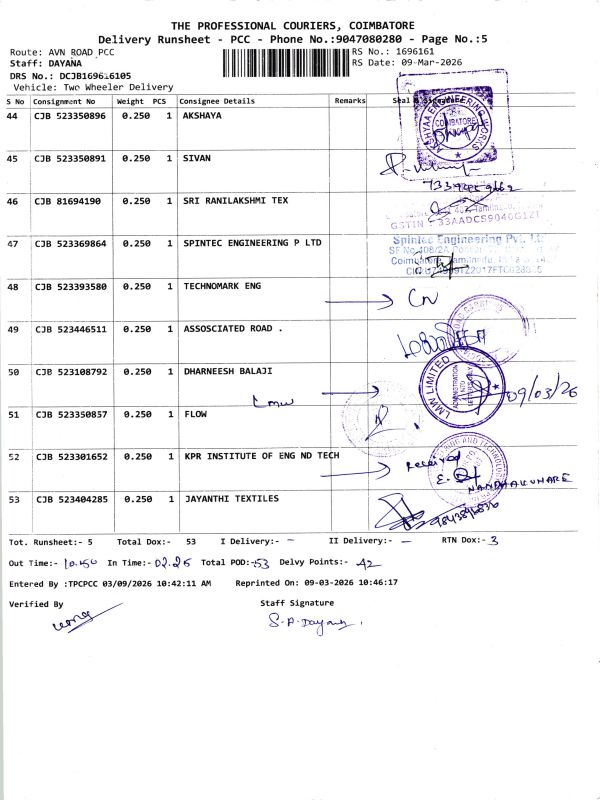 THE PROFESSIONAL COURIERS, COIMBATORE
Delivery Runsheet - PCC - Phone No.:9047080280 - Page No.:5
Route: AVN ROAD PCC
RS No.: 1696161
Staff: DAYANA
RS Date: 09-Mar-2026
DRS No.: DCJB169616105
Vehicle: Two Wheeler Delivery
S No Consignment No Weight PCS Consignee Details Remarks Seal &
44 CJB 523350896 0.250 1 AKSHAYA
AKSHYAA ENGINEERING WORKS
COIMBATORE
45 CJB 523350891 0.250 1 SIVAN
46 CJB 81694190 0.250 1 SRI RANILAKSHMI TEX
GSTIN : 33AADCS9040G1Z1
47 CJB 523369864 0.250 1 SPINTEC ENGINEERING P LTD
Spintec Engineering Pvt. Ltd
SF No.408/2A
48 CJB 523393580 0.250 1 TECHNOMARK ENG
49 CJB 523446511 0.250 1 ASSOSCIATED ROAD .
50 CJB 523108792 0.250 1 DHARNEESH BALAJI
LMW LIMITED
ADMINISTRATION
09/03/26
Lmw
51 CJB 523350857 0.250 1 FLOW
52 CJB 523301652 0.250 1 KPR INSTITUTE OF ENG ND TECH
received
NANDHAKUMARE
53 CJB 523404285 0.250 1 JAYANTHI TEXTILES
9843896836
Tot. Runsheet:- 5 Total Dox:- 53 I Delivery:- - II Delivery:- - RTN Dox:- 3
Out Time:- 10.50 In Time:- 02.25 Total POD:- 53 Delvy Points:- 42
Entered By :TPCPCC 03/09/2026 10:42:11 AM Reprinted On: 09-03-2026 10:46:17
Verified By Staff Signature
S.A. Dayana.